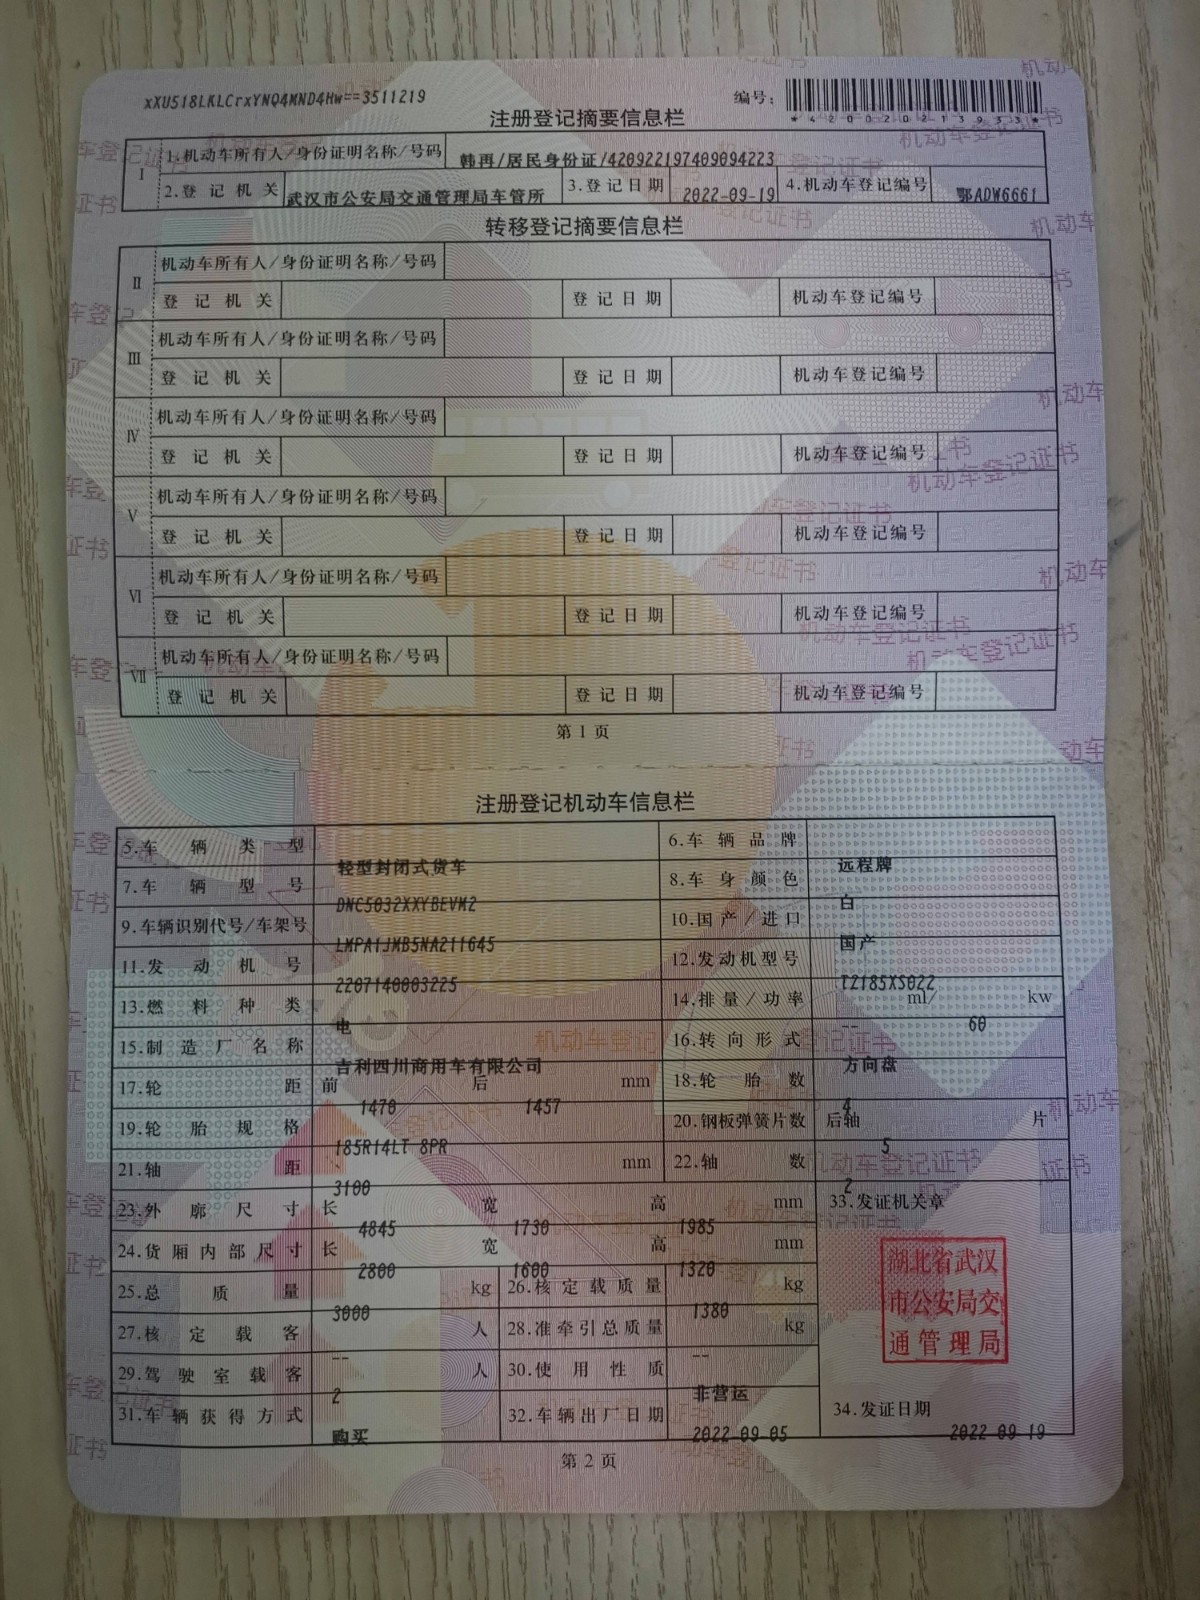 xXU518LKLCrxYNQ4MND4Hw==3511219
编号:
*420020213933*
注册登记摘要信息栏
I 1.机动车所有人/身份证明名称/号码 韩再/居民身份证/420922197409094223
2.登记机关 武汉市公安局交通管理局车管所 3.登记日期 2022-09-19 4.机动车登记编号 鄂ADW6661
转移登记摘要信息栏
II 机动车所有人/身份证明名称/号码
登记机关 登记日期 机动车登记编号
III 机动车所有人/身份证明名称/号码
登记机关 登记日期 机动车登记编号
IV 机动车所有人/身份证明名称/号码
登记机关 登记日期 机动车登记编号
V 机动车所有人/身份证明名称/号码
登记机关 登记日期 机动车登记编号
VI 机动车所有人/身份证明名称/号码
登记机关 登记日期 机动车登记编号
VII 机动车所有人/身份证明名称/号码
登记机关 登记日期 机动车登记编号
第1页
注册登记机动车信息栏
5.车辆类型 轻型封闭式货车 6.车辆品牌 远程牌
7.车辆型号 DNC5032XXYBEVM2 8.车身颜色 白
9.车辆识别代号/车架号 LMPA1JMB5NA211645 10.国产/进口 国产
11.发动机号 2207140003225 12.发动机型号 TZ185XS022
13.燃料种类 电 14.排量/功率 -- ml/ 60 kw
15.制造厂名称 吉利四川商用车有限公司 16.转向形式 方向盘
17.轮距 前 1470 后 1457 mm 18.轮胎数 4
19.轮胎规格 185R14LT 8PR 20.钢板弹簧片数 后轴 5 片
21.轴距 3100 mm 22.轴数 2
23.外廓尺寸 长 4845 宽 1730 高 1985 mm 33.发证机关章
24.货厢内部尺寸 长 2800 宽 1600 高 1320 mm
湖北省武汉
市公安局交
通管理局
25.总质量 3000 kg 26.核定载质量 1380 kg
27.核定载客 -- 人 28.准牵引总质量 -- kg
29.驾驶室载客 2 人 30.使用性质 非营运
31.车辆获得方式 购买 32.车辆出厂日期 2022-09-05 34.发证日期 2022-09-19
第2页